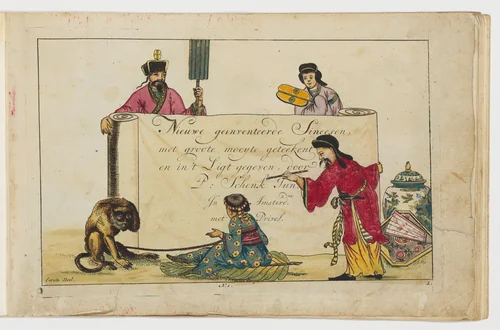 Nieuwe geinventeerde Sineesen,
met groote moeyte geteekent
en in't Ligt gegeven, door
P: Schenk Jun
In Amsterd
met Privil.
Eerste Deel.
N.1.
1.